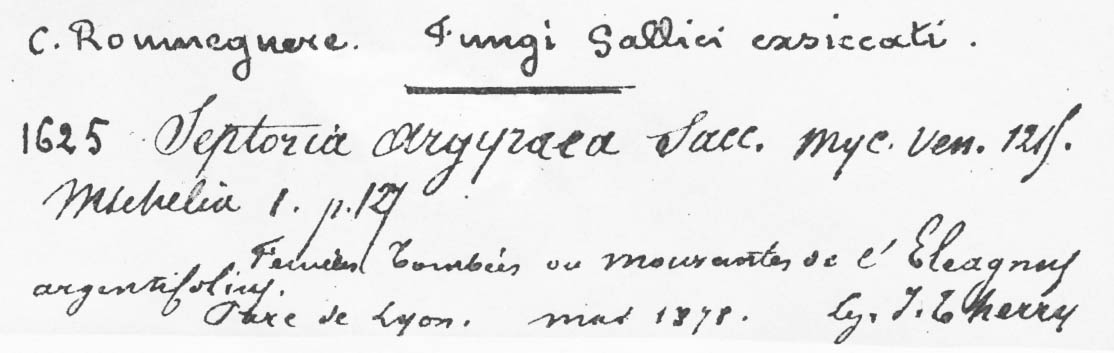 C. Roumeguere. Fungi Gallici exsiccati.
1625 Septoria argyraea Sacc. Myc. Ven. 1215.
Michelia 1. p. 127
Feuilles tombées ou mourantes de l' Eleagnus
argentifolius.
Parc de Lyon. mai 1878. Lg. J. Therry